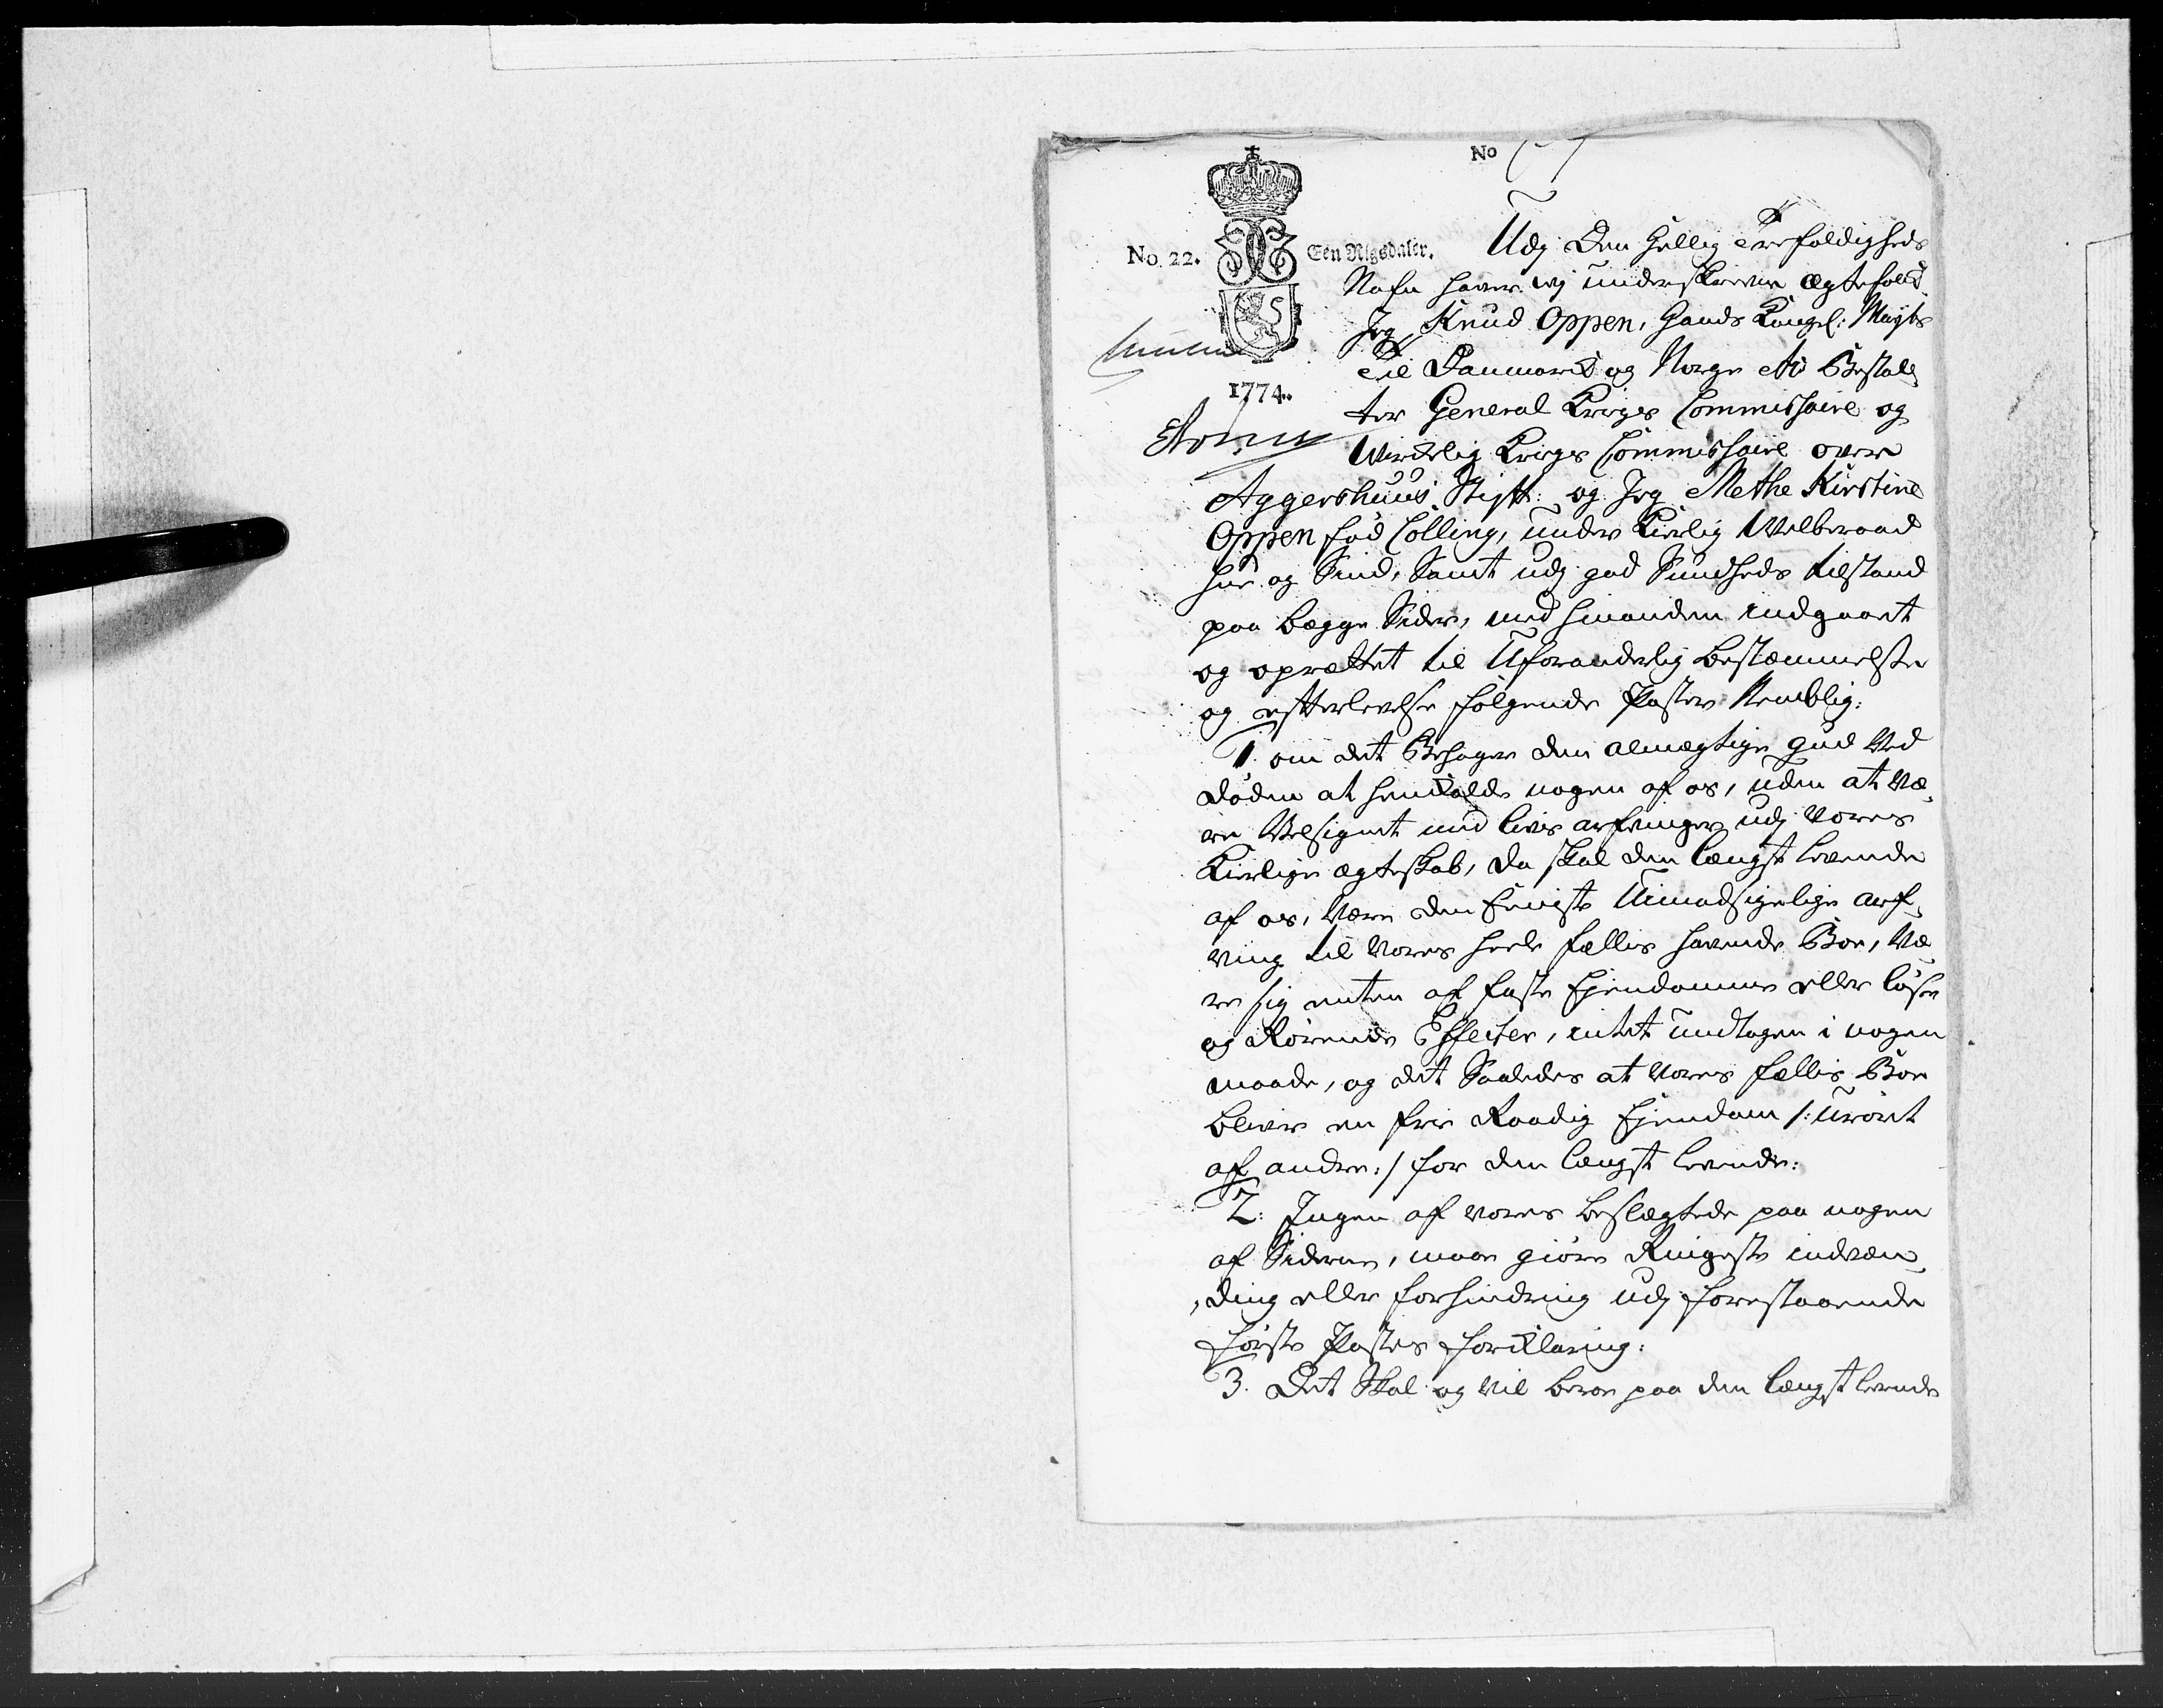 No
No. 22.
Een Rigsdaler.
1774.
Udj Den Hellig Trefoldigheds
Nafn haver wj underskrevne Ægtefolk
Jeg Knud Oppen, Hands Kongel: Mayts
Til Danmark og Norge etc Bestal,
ter General Krigs Commissaire og
Wirkelig Krigs Commissaire over
Aggershuus Stift: og Jeg Methe Kirstine
Oppen fød Colling, under Kierlig Welberaad
Hue og Sind, Samt udj god Sundheds tilstand
paa begge Sider, med hinanden indgaaet
og oprettet til Uforanderlig bestemmelse
og efterlevelse følgende Poster Nemblig:
1. om det Behager den almegtige Gud Ved
døden at henkalde nogen af os, uden at Væ,
re Velsignet med livs arfvinger udj Vores
Kierlige ægteskab, da skal den længst levende
af os, Være den Eeniste Uimodsigelige arf,
ving til Vores heele fælles havende Boe, Væ
re sig enten af faste Ejendomme eller løse
og Rørende Effecter, intet undtagen i nogen
maade, og det Saaledes at Vores fælles Boe
bliver en frie Raadig Ejendom /: Urørt
af andre :/ for den længst levende:
2: Ingen af vores beslægtede paa nogen
af Siderne, maae giøre Ringeste indven,
,ding eller forhindring udj forestaaende
første Postes forklaring:
3. Det Skal og Vil beroe paa den længst levende